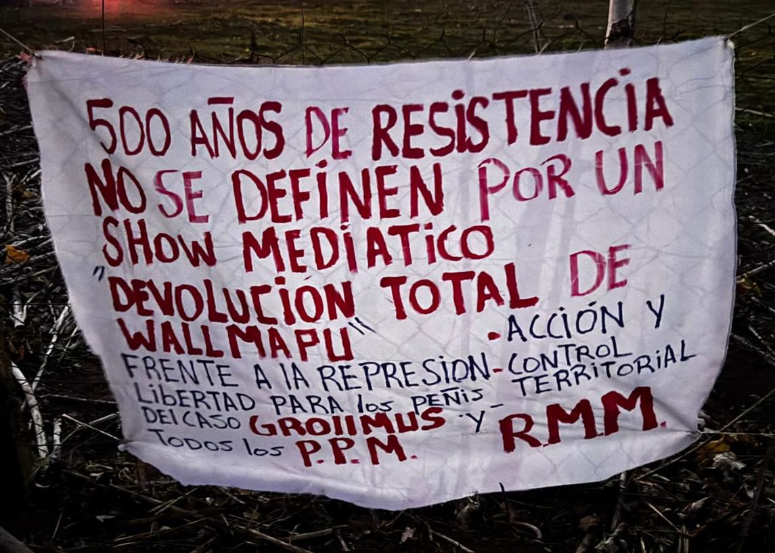 500 AÑOS DE RESISTENCIA
NO SE DEFINEN POR UN
SHOW MEDIATICO
"DEVOLUCION TOTAL DE
WALLMAPU"
FRENTE A lA REPRESION
LIBERTAD PARA los PEÑIS
DEl CASO GROllMUS Y
TODOS los P.P.M.
- ACCIÓN Y
- CONTROL
TERRITORIAL
RMM.